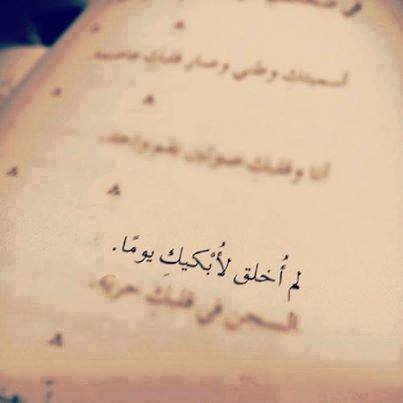 أسميتك وطني وصار قلبك عاصمة
أنا وقلبك صوتان بفم واحد.
لم أُخلق لأُبْكيكِ يومًا.
السجن في قلبك حرية.